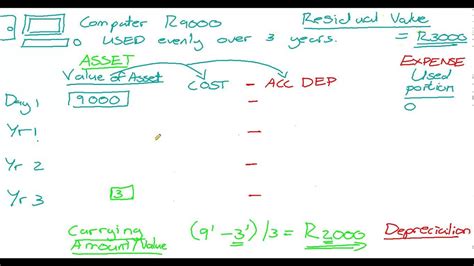 Computer R9000 Residual Value
USED evenly over 3 years. = R3000
ASSET EXPENSE
Value of Asset COST - ACC DEP Used
portion
Day 1 9000 - 0
Yr 1 -
Yr 2 -
Yr 3 3 -
Carrying (9' - 3') / 3 = R2000 Depreciation
Amount/Value